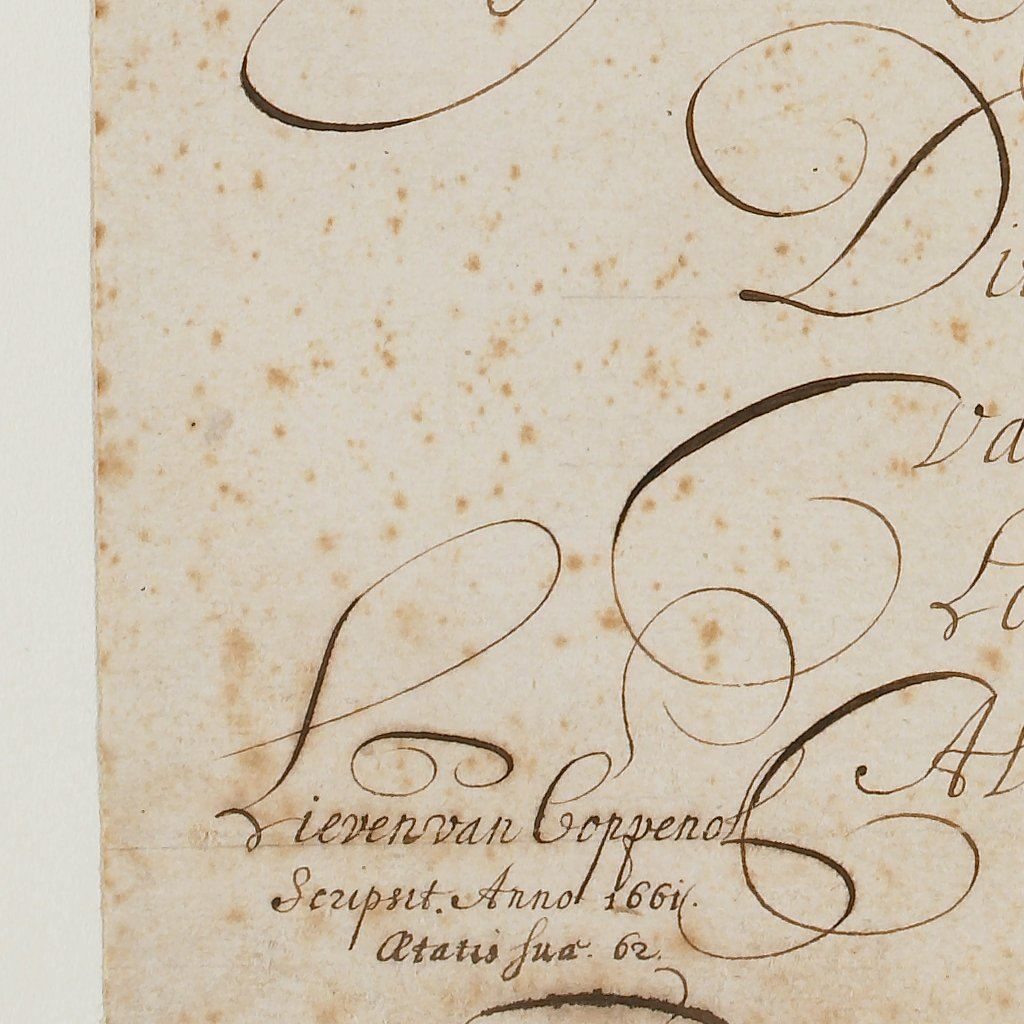 Di
Va
Lo
Al
Lieven van Coppenol
Scripsit. Anno 1661.
Ætatis suæ. 62.